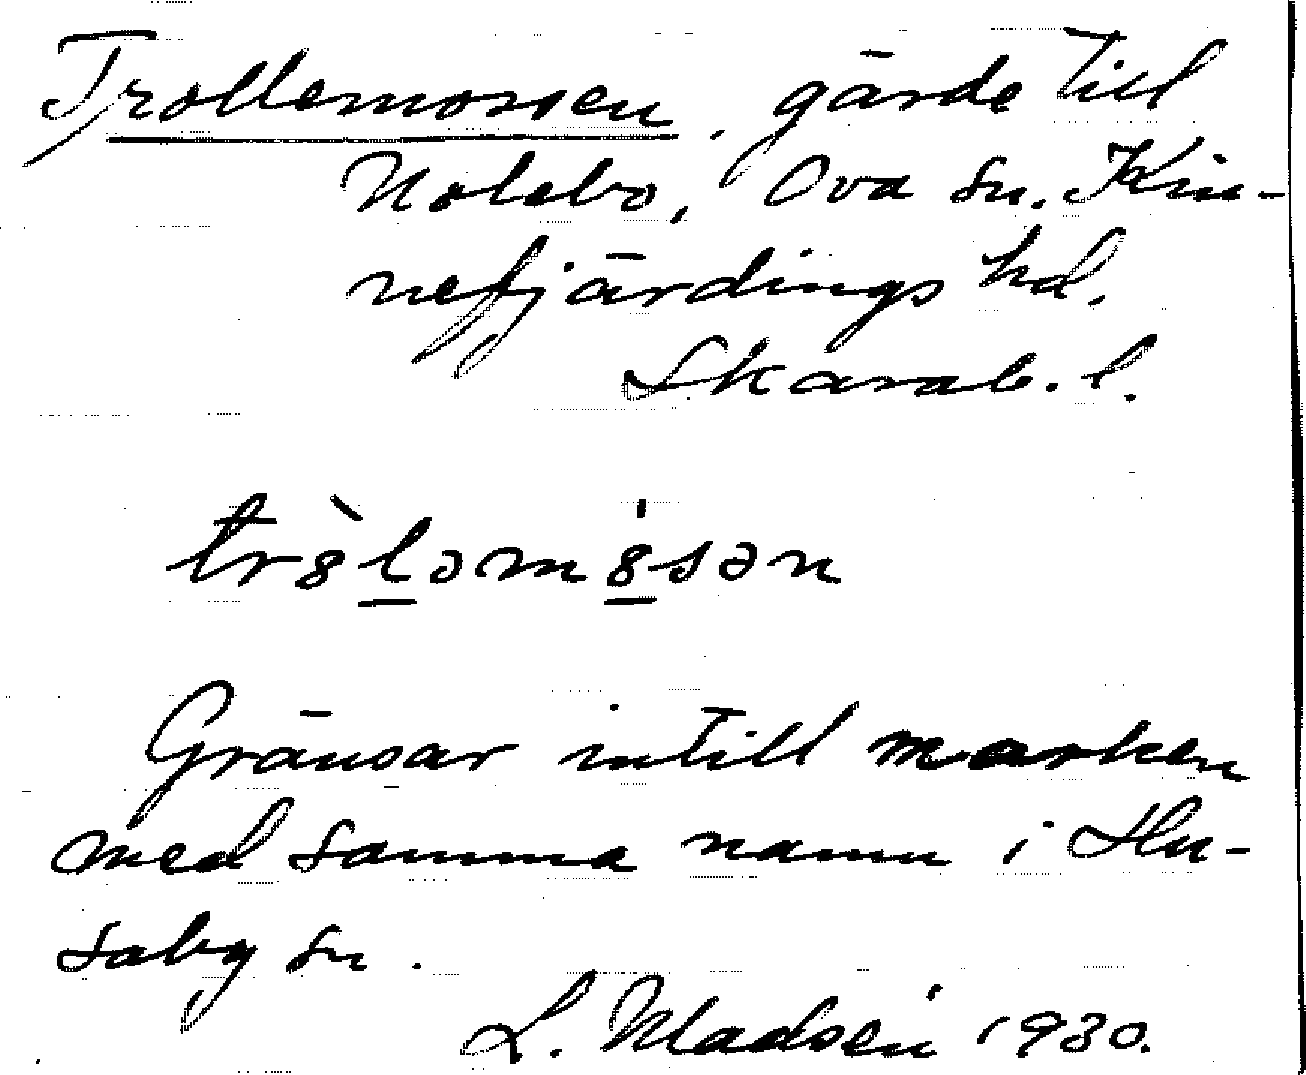 Trollemossen, gärde till
Nolebo, Ova sn. Kin-
nefjärdings hd.
Skarab. l.
Gränsar intill marken
med samma namn i Hu-
saby sn.
L. Madsén 1930.